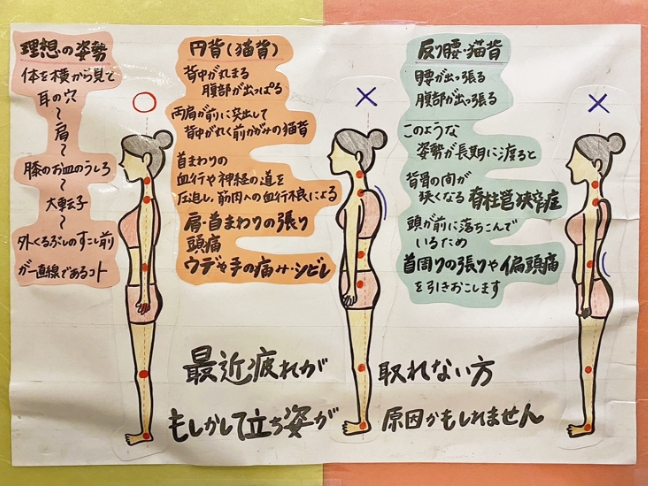 理想の姿勢
体を横から見て
耳の穴
〜
肩
〜
膝のお皿のうしろ
〜
大転子
〜
外くるぶしのすこし前
が一直線であるコト
円背(猫背)
背中が丸まる
腹部が出っぱる
両肩が前に突出して
背中が丸く前かがみの猫背
首まわりの
血行や神経の道を
圧迫し、筋肉への血行不良による
肩・首まわりの張り
頭痛
ウデや手の痛み・シビレ
反り腰・猫背
腰が出っ張る
腹部が出っ張る
このような
姿勢が長期に渡ると
背骨の間が
狭くなる脊柱管狭窄症
頭が前に落ちこんで
いるため
首周りの張りや偏頭痛
を引きおこします
最近疲れが 取れない方
もしかして立ち姿が 原因かもしれません